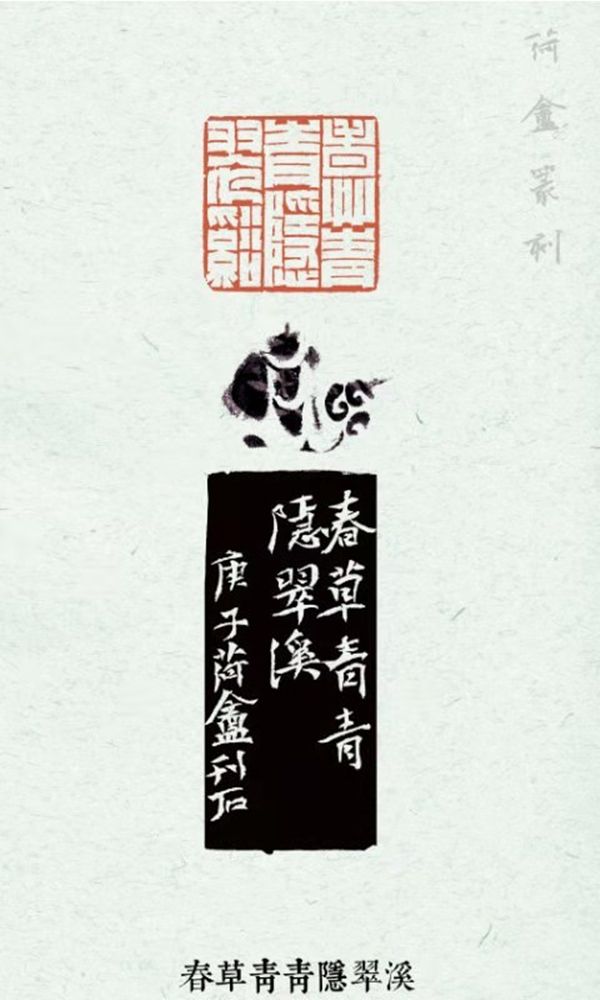 荷盦叢刻
春艸青
青隱
翠谿
春草青青
隱翠溪
庚子荷盦刊石
春草青青隱翠溪